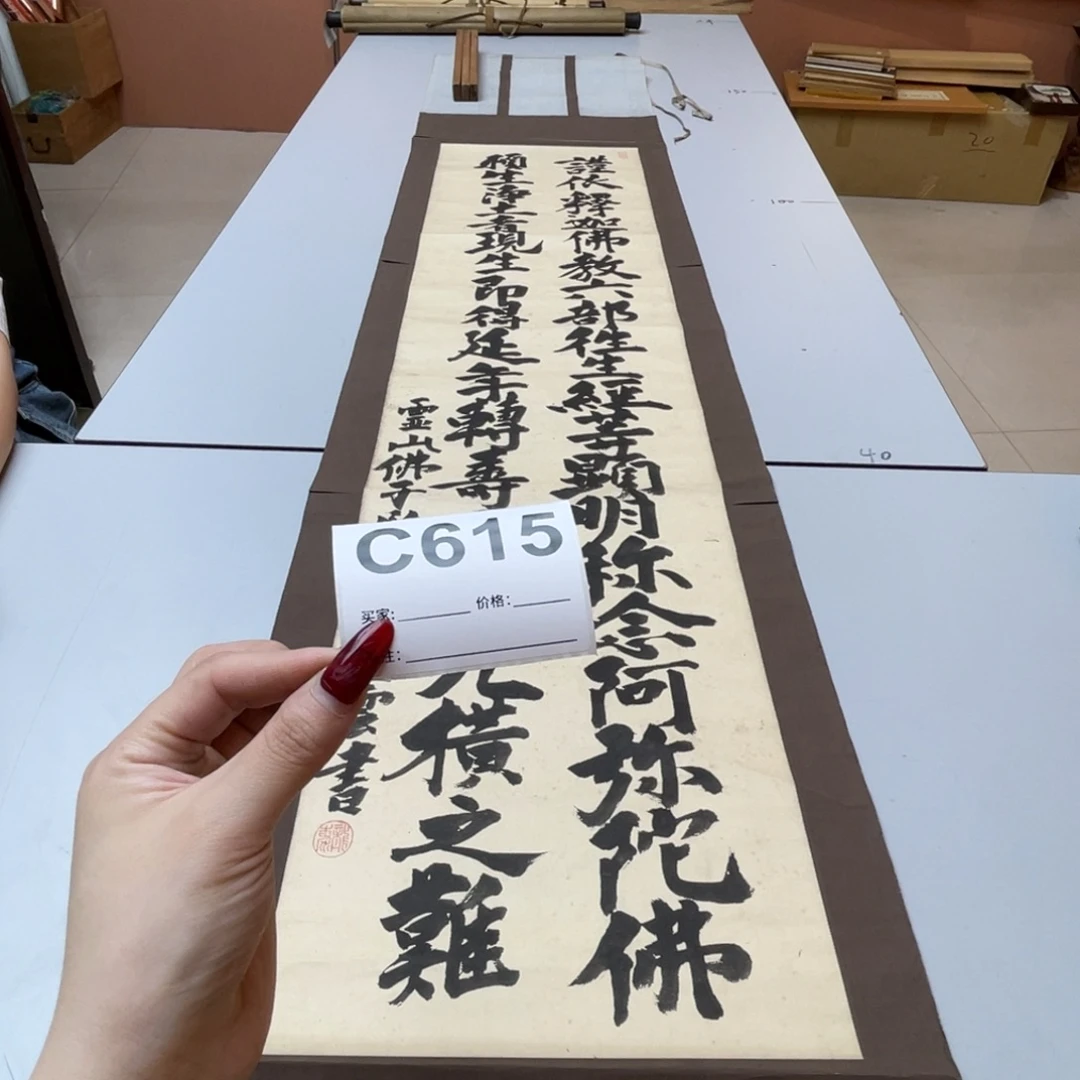 謹依釋迦佛教六部往生經等顯明称念阿弥陀佛
願生浄土者現生即得延年轉壽
九橫之難
靈山佛子
書
C615
买家:
价格:
注:
20
40
150
100